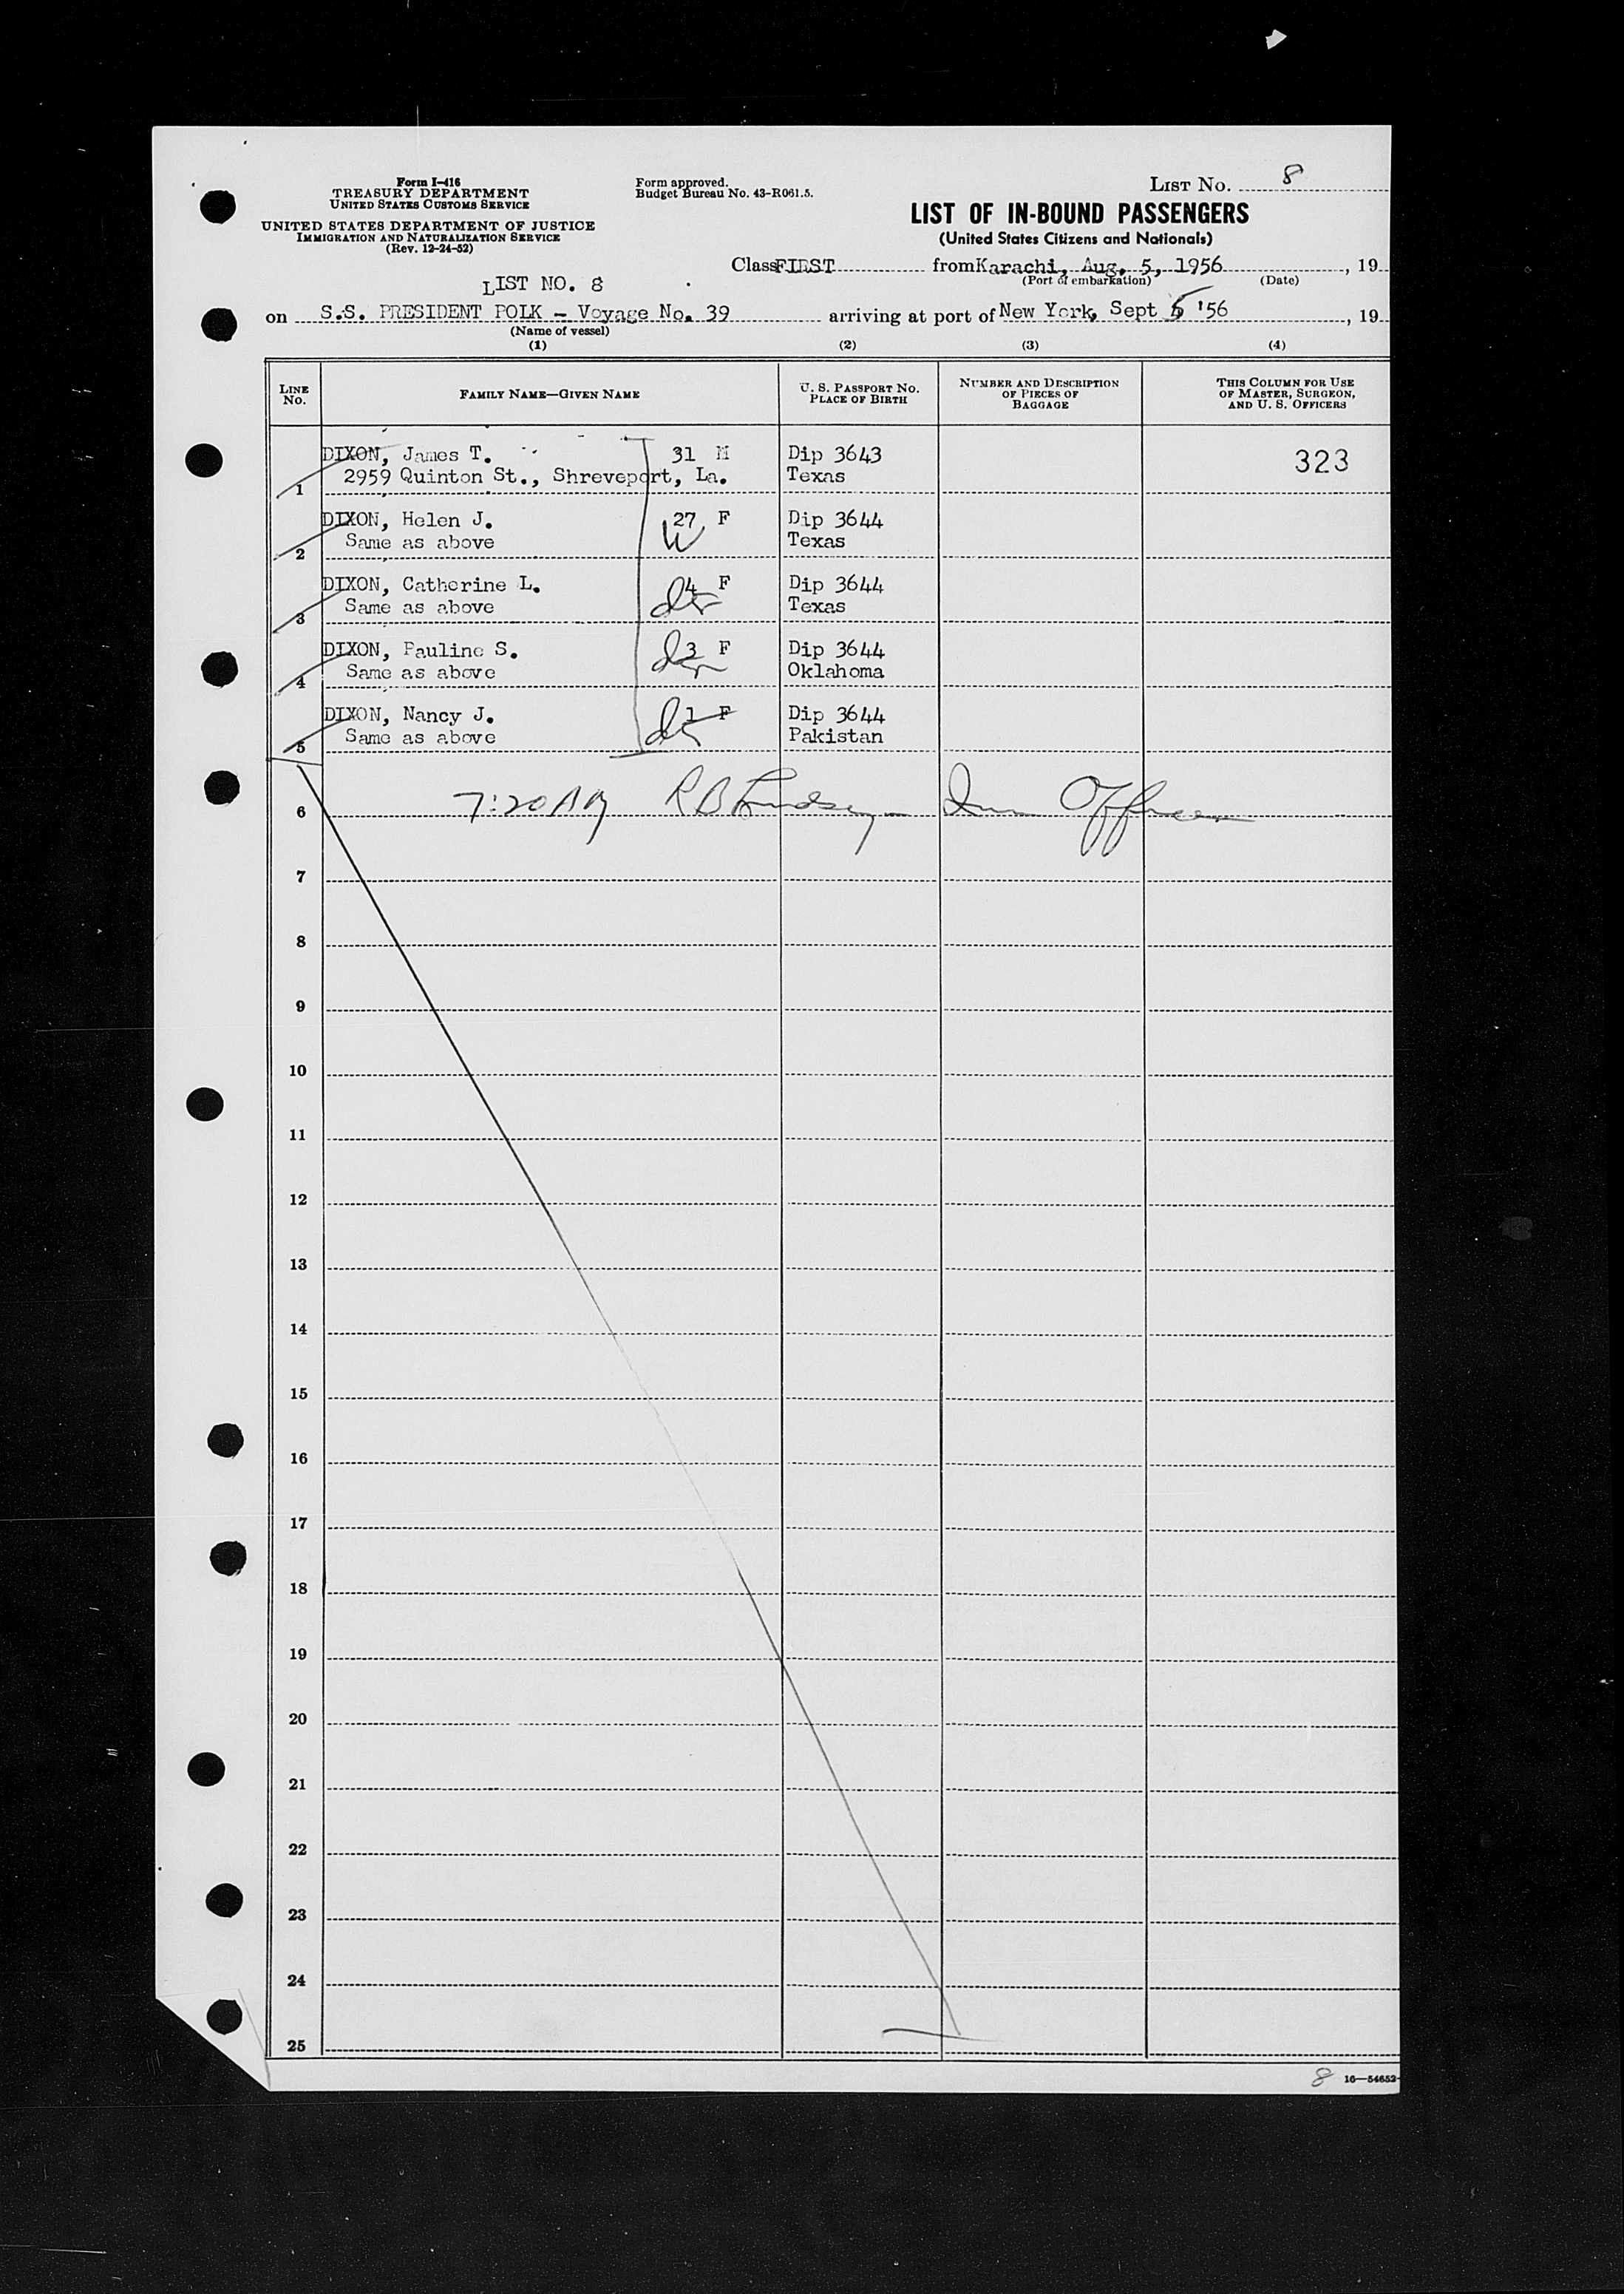 Form I-416
TREASURY DEPARTMENT
UNITED STATES CUSTOMS SERVICE
UNITED STATES DEPARTMENT OF JUSTICE
IMMIGRATION AND NATURALIZATION SERVICE
(Rev. 12-24-52)
Form approved.
Budget Bureau No. 43-R061.5.
LIST NO. 8
LIST OF IN-BOUND PASSENGERS
(United States Citizens and Nationals)
Class FIRST from Karachi, Aug. 5, 1956, 19
(Port of embarkation) (Date)
LIST NO. 8
on S.S. PRESIDENT POLK - Voyage No. 39 arriving at port of New York, Sept 5 '56, 19
(Name of vessel)
(1) (2) (3) (4)
LINE NO. FAMILY NAME—GIVEN NAME U. S. PASSPORT NO. PLACE OF BIRTH NUMBER AND DESCRIPTION OF PIECES OF BAGGAGE THIS COLUMN FOR USE OF MASTER, SURGEON, AND U. S. OFFICERS
DIXON, James T. 31 M Dip 3643 323
1 2959 Quinton St., Shreveport, La. Texas
DIXON, Helen J. 27 F Dip 3644
2 Same as above W Texas
DIXON, Catherine L. 4 F Dip 3644
3 Same as above Texas
DIXON, Pauline S. 3 F Dip 3644
4 Same as above Oklahoma
DIXON, Nancy J. 1 F Dip 3644
5 Same as above Pakistan
6 7:20 AM R B Lindsey Imm Officer
7
8
9
10
11
12
13
14
15
16
17
18
19
20
21
22
23
24
25
8 16—54652